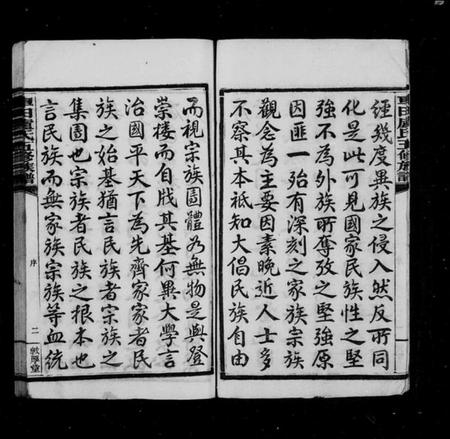 經幾度異族之侵入然反所同
化是此可見國家民族性之堅
強不為外族所奪攷之堅強原
因匪一殆有深刻之家族宗族
觀念為主要因素晚近人士多
不察其本祗知大倡民族自由
而視宗族團體為無物是與登
崇樓而自戕其基何異大學言
治國平天下為先齊家家者民
族之始基猶言民族者宗族之
集團也宗族者民族之根本也
言民族而無家族宗族等血統
序
二
敦厚堂